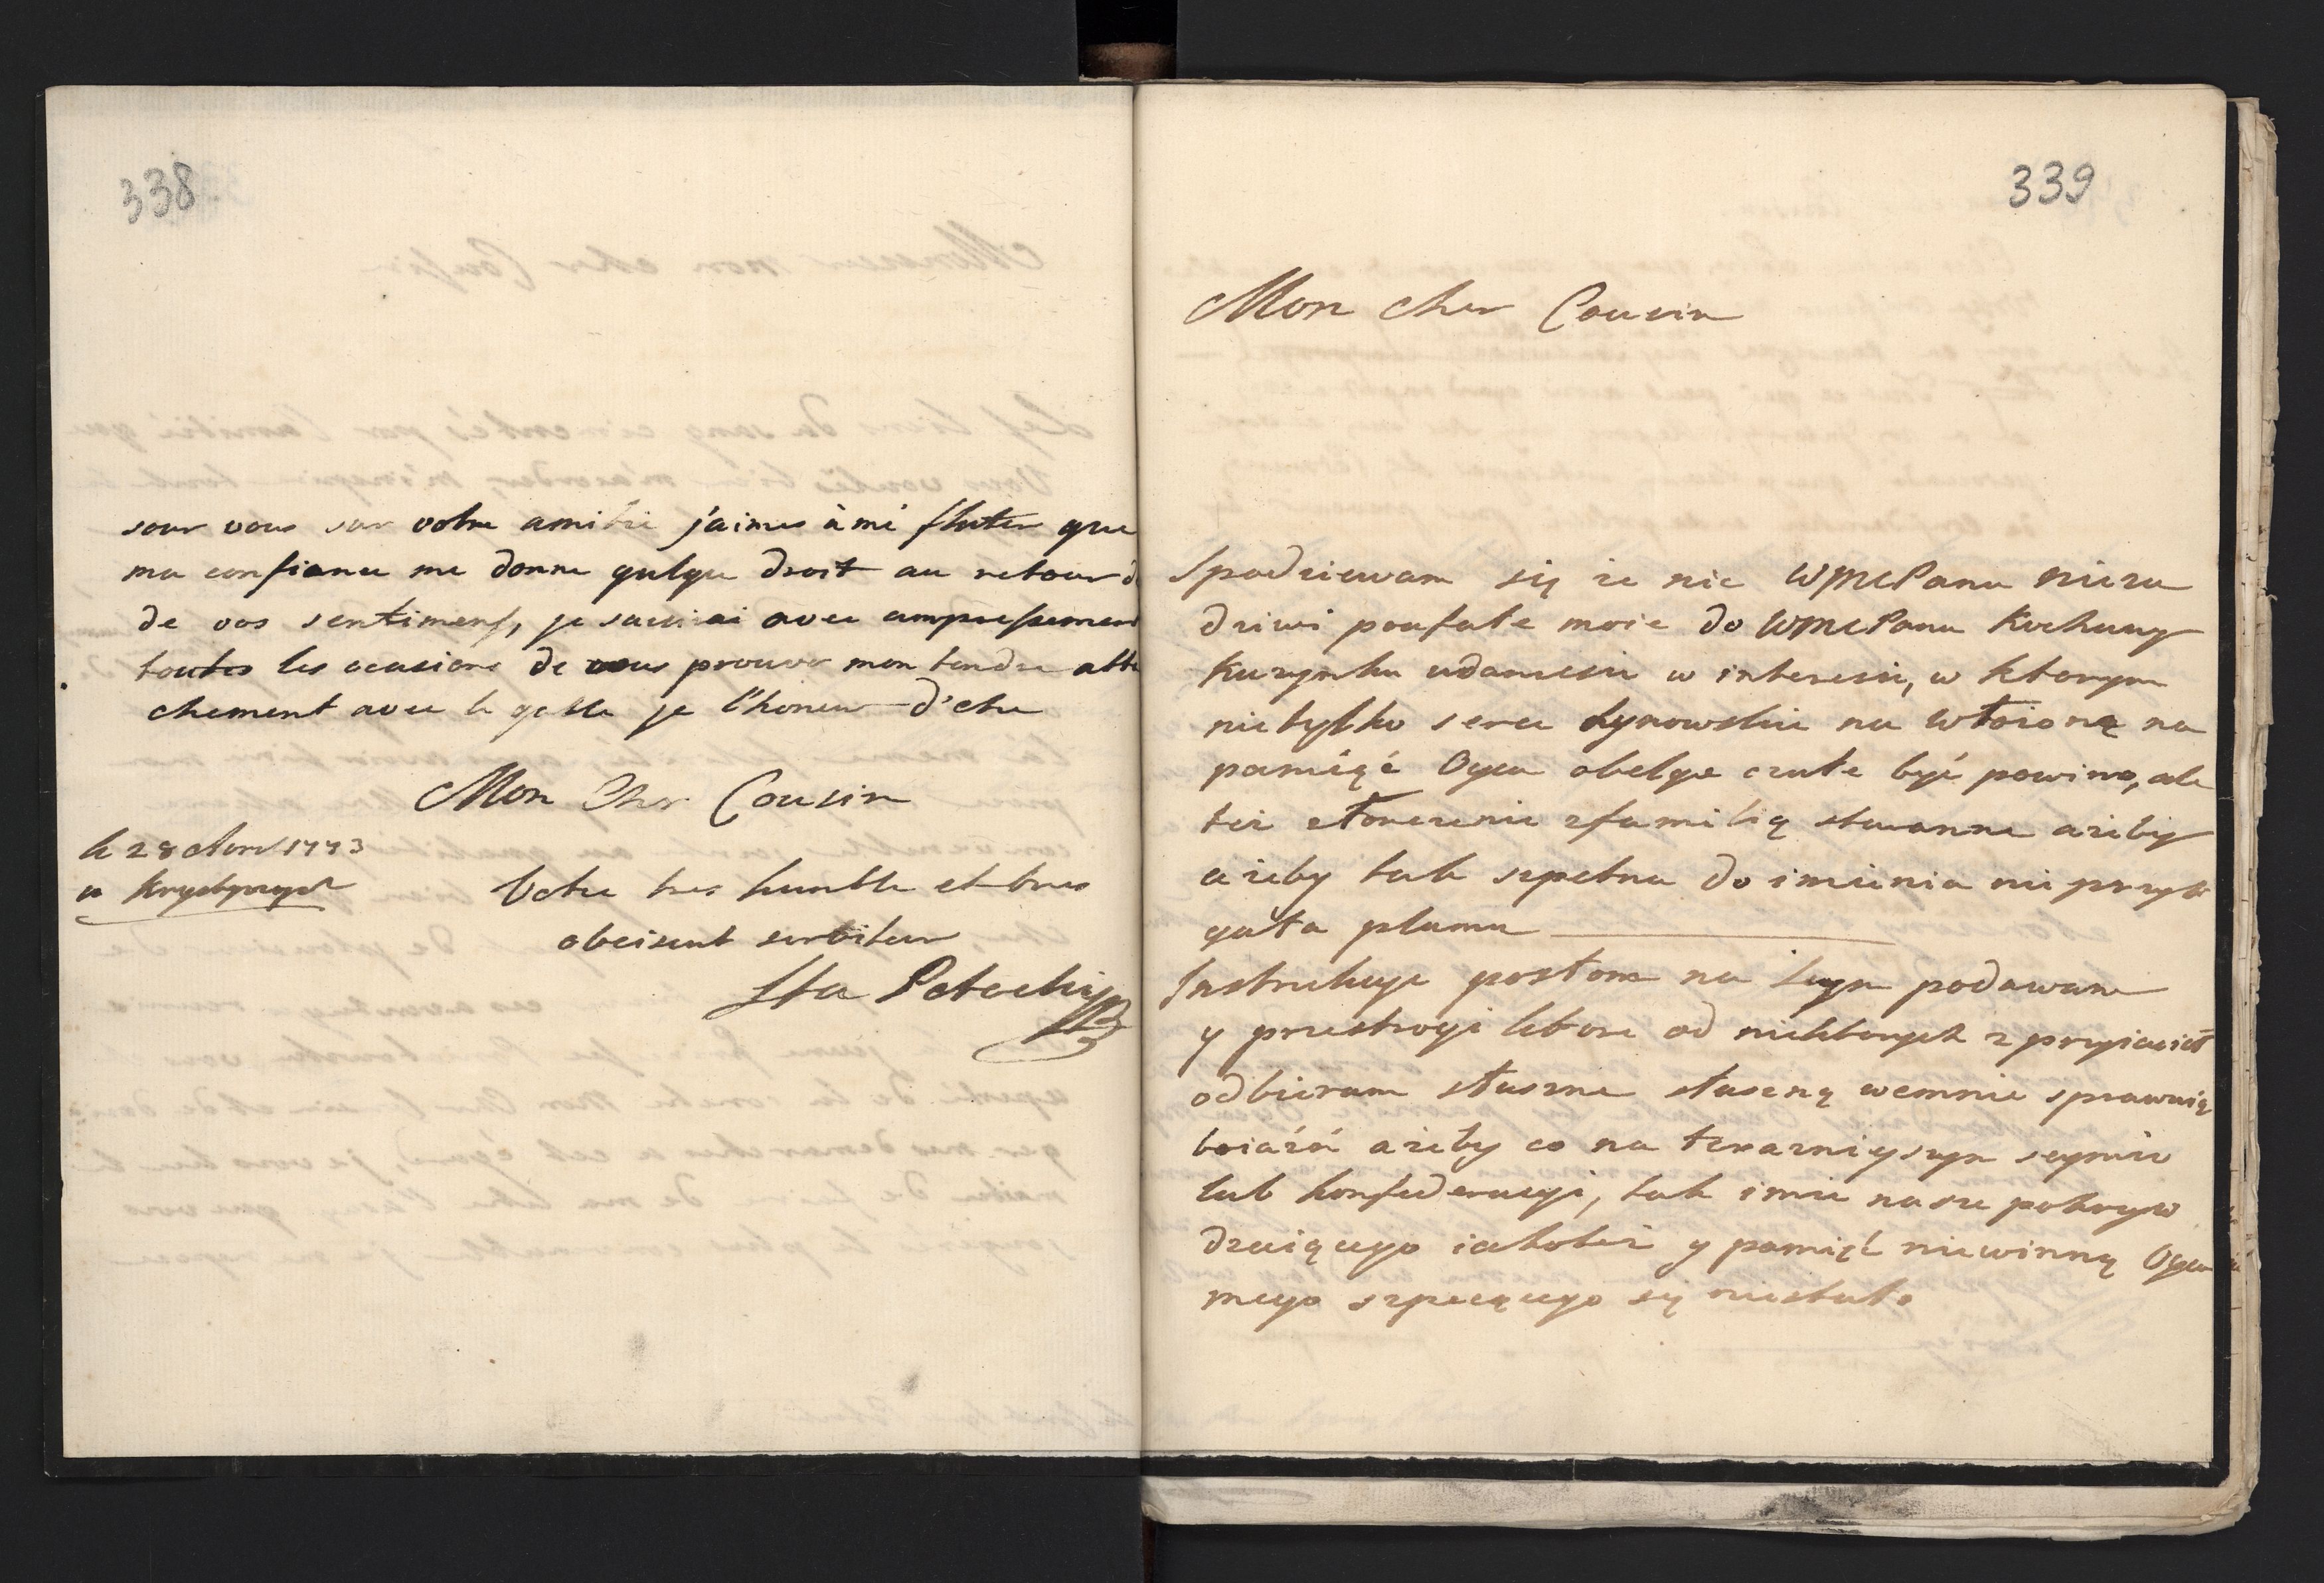 338
sour vous sur votre amitié j'aimes à mé flater que
ma confiance me donne qulque droit au retour d
de vos sentimens, je saisirai avec ampressement
toutes les ocasions de vous prouver mon tendre atta
chement avec le je l'honeur d'etre
Mon Cher Cousin
le 28 1773
a Krystynopol
Votre tres humble et tres
obeisent serviteur
Sta Potocki
339
Mon cher Cousin
Spodziewam się że nie WMCPana niezu
dziwi poufałe moie do WMCPana Kochany
Kuzynku udanie się w interesie, w ktorym
nie tylko serce synowskie na włożoną na
pamięć Oyca obelge czułe być powino, ale
też złonczenie zfamilią staranne ażeby
ażeby tak szpetna do imienia nie przyle
gała plama
Instrukcye posłom na Seym podawane
y przestrogi ktore od niektorych z przyiacioł
odbieram słuszne słuszną wemnie sprawuią
boiaźń ażeby co na teraznieyszym seymie
lub konfederacyi, tak imie nasze pokrzyw
dzaiącego iakoteż y pamięć niewinną Oyca
mego szpecącego się niestało